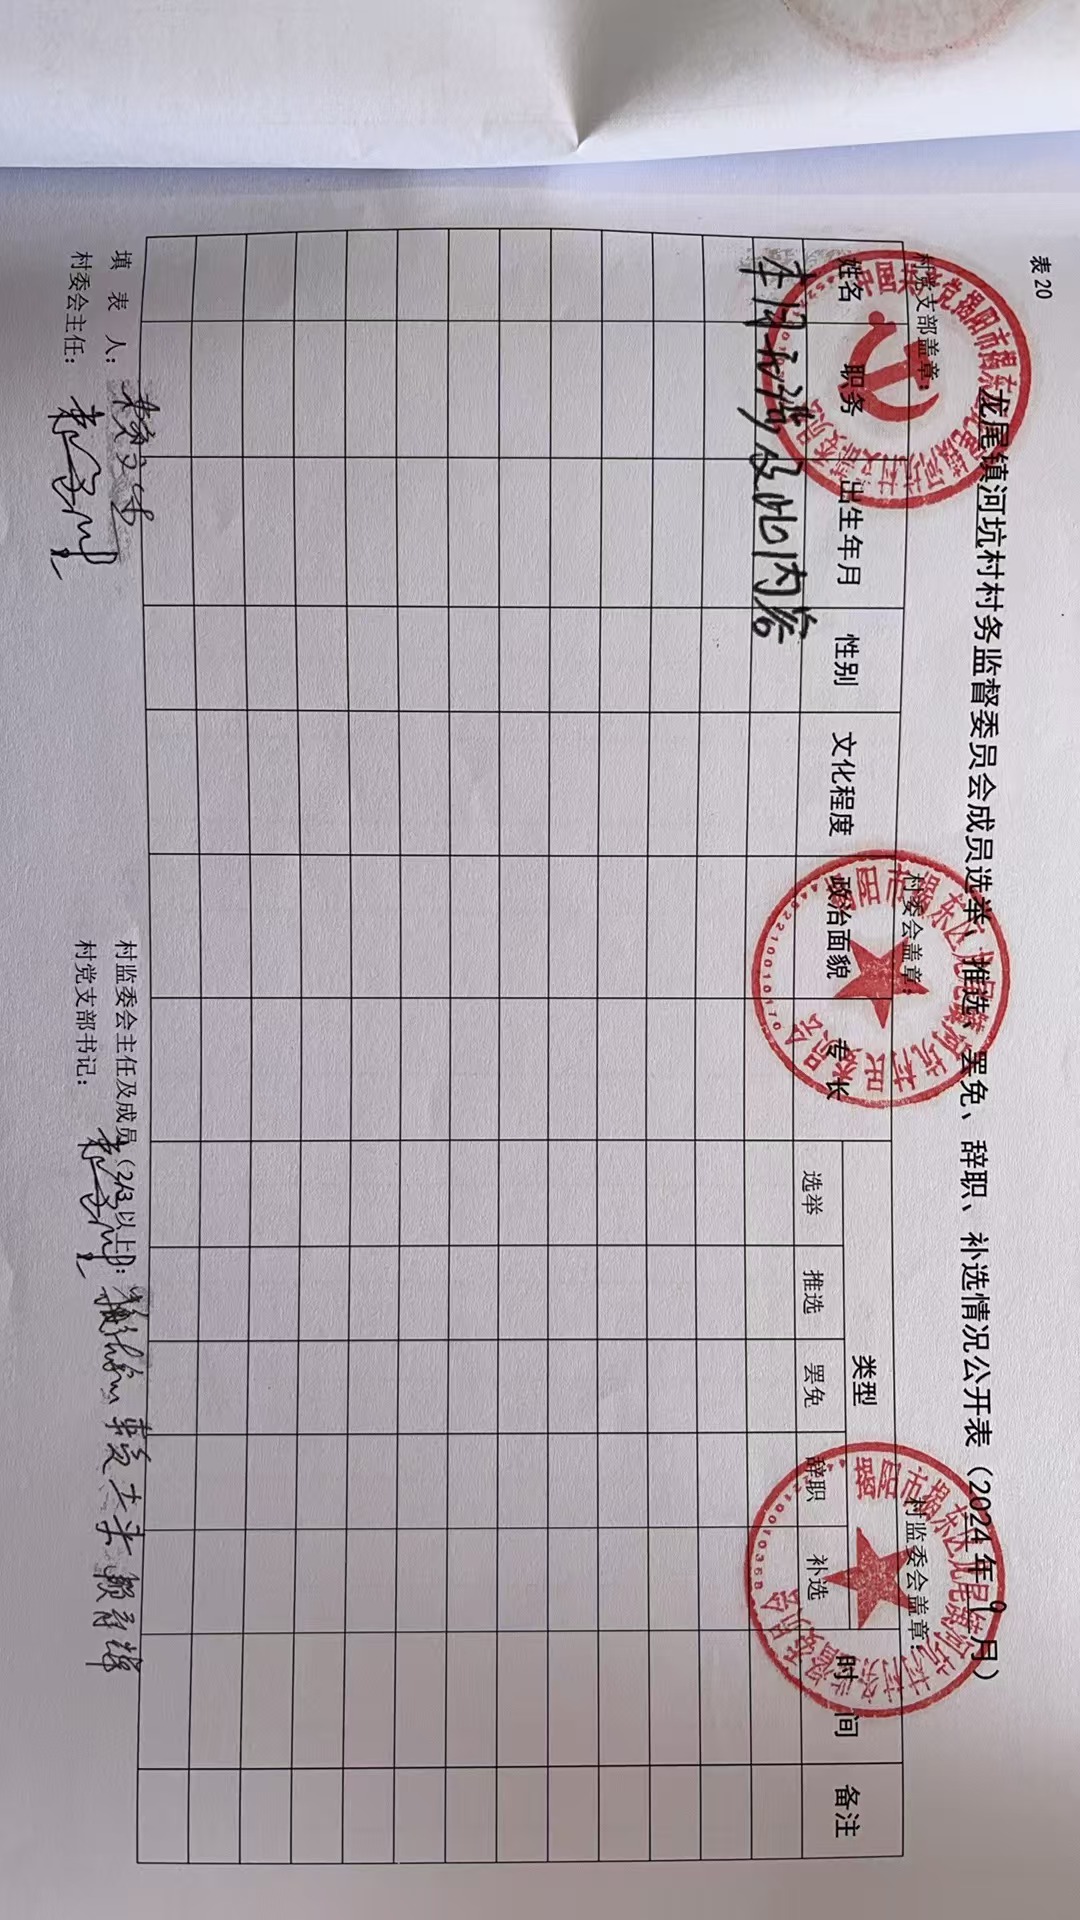 表 20
龙尾镇河坑村村务监督委员会成员选举、推选、罢免、辞职、补选情况公开表（2024年9月）
村党支部盖章： 村委会盖章： 村监委会盖章：
姓名 职务 出生年月 性别 文化程度 政治面貌 专长 类型 时间 备注
选举 推选 罢免 辞职 补选
本月不涉及此内容
填表人： 村监委会主任及成员（2/3以上）：
村委会主任： 村党支部书记：